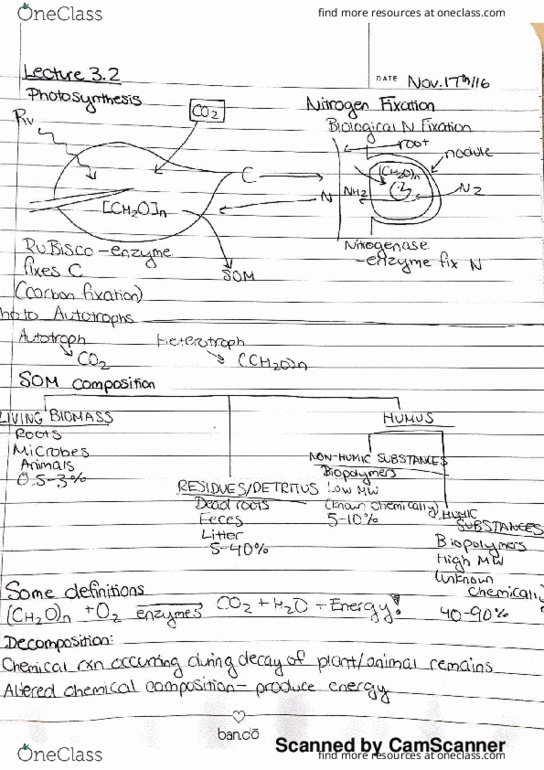 OneClass
find more resources at oneclass.com
Lecture 3.2
DATE Nov.17th/16
Photosynthesis
CO2
Nitrogen Fixation
Biological N Fixation
root
nodule
(CH2O)n
C
N
NH2
N2
[CH2O]n
RuBisco - enzyme
fixes C
(carbon fixation)
SOM
Nitrogenase
- enzyme fix N
hoto Autotrophs
Autotroph
Heterotroph
CO2
(CH2O)n
SOM composition
LIVING BIOMASS
Roots
Microbes
Animals
0.5-3%
HUMUS
NON-HUMIC SUBSTANCES
Biopolymers
Low MW
(known chemically)
5-10%
RESIDUES/DETRITUS
Dead roots
Feces
Litter
5-40%
HUMIC
SUBSTANCES
Biopolymers
High MW
Unknown
chemically
40-90%
Some definitions
(CH2O)n + O2 enzymes CO2 + H2O + Energy!
Decomposition:
Chemical rxn occurring during decay of plant/animal remains
Altered chemical composition - produce energy
bando
Scanned by CamScanner
OneClass
find more resources at oneclass.com